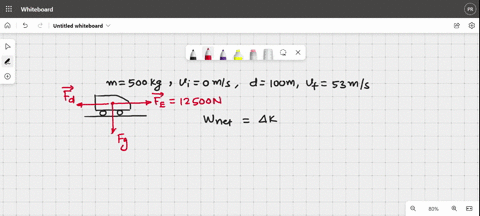 Whiteboard
PR
Untitled whiteboard
m = 500 kg , υi = 0 m/s , d = 100m, υf = 53 m/s
Fd
FE = 12500N
Fg
Wnet = ΔK
80%